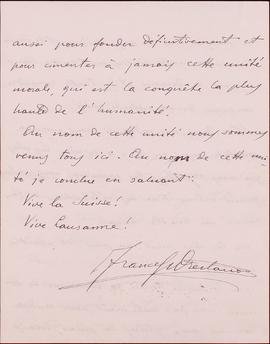 aussi pour fonder définitivement et
pour cimenter à jamais cette unité
morale, qui est la conquête la plus
haute de l'humanité.
Au nom de cette unité nous sommes
venus tous ici. Au nom de cette uni-
té je conclue en saluant:
Vive la Suisse!
Vive Lausanne!
Francesco Orestano